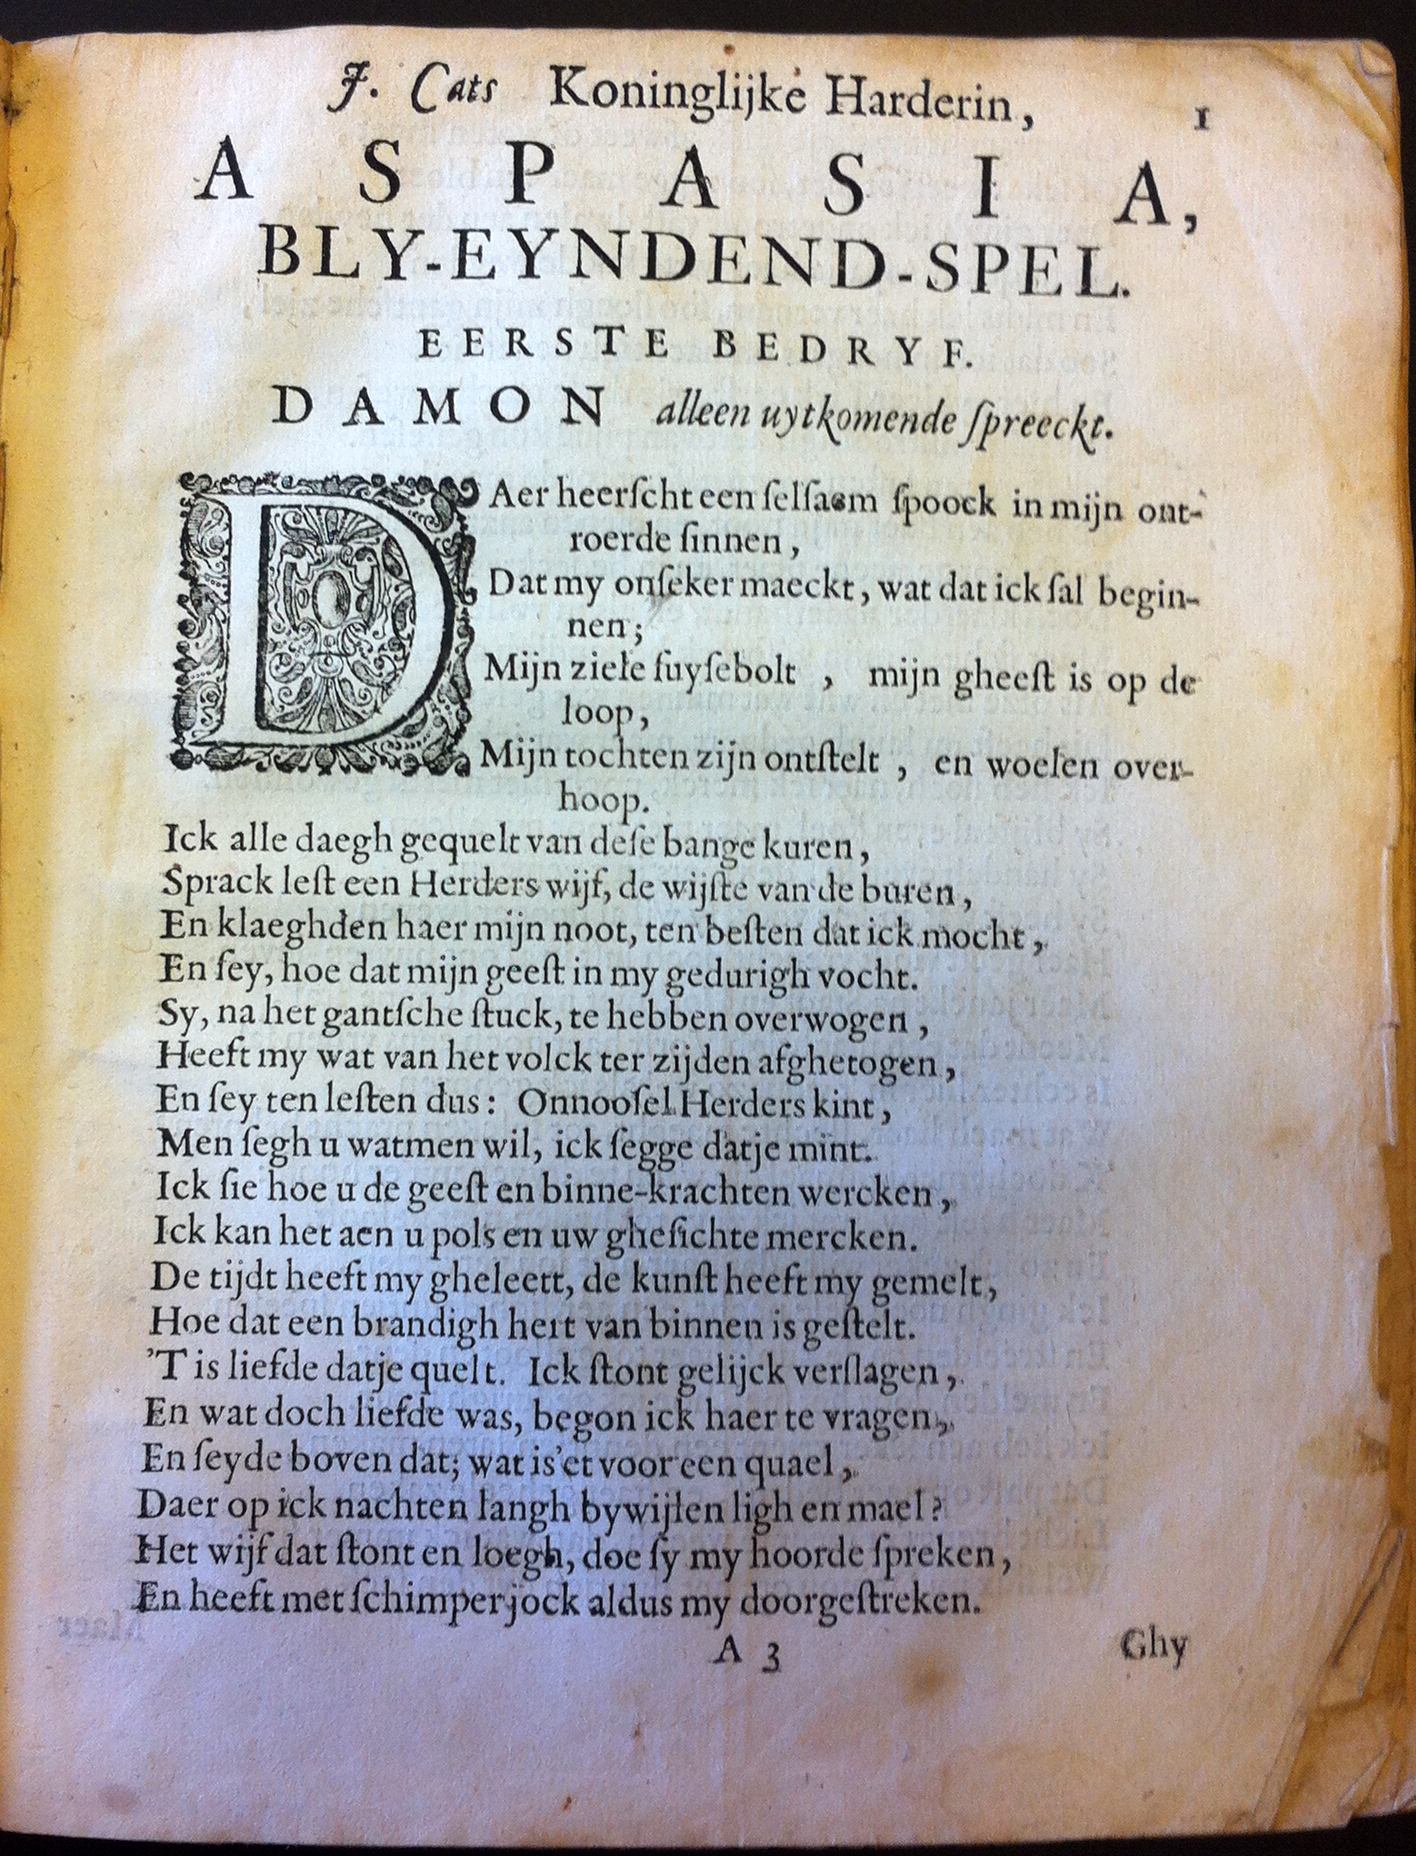 J. Cats Koninglijke Harderin, 1
ASPASIA,
BLY-EYNDEND-SPEL.
EERSTE BEDRYF.
DAMON alleen uytkomende ſpreeckt.
DAer heerſcht een ſelſaem ſpoock in mijn ont-
roerde ſinnen,
Dat my onſeker maeckt, wat dat ick ſal begin-
nen;
Mijn ziele ſuyſebolt, mijn gheeſt is op de
loop,
Mijn tochten zijn ontſtelt, en woelen over-
hoop.
Ick alle daegh gequelt van deſe bange kuren,
Sprack leſt een Herders wijf, de wijſte van de buren,
En klaeghden haer mijn noot, ten beſten dat ick mocht,
En ſey, hoe dat mijn geeſt in my gedurigh vocht.
Sy, na het gantſche ſtuck, te hebben overwogen,
Heeft my wat van het volck ter zijden afghetogen,
En ſey ten leſten dus: Onnooſel Herders kint,
Men ſegh u watmen wil, ick ſegge datje mint.
Ick ſie hoe u de geeſt en binne-krachten wercken,
Ick kan het aen u pols en uw gheſichte mercken.
De tijdt heeft my gheleert, de kunſt heeft my gemelt,
Hoe dat een brandigh hert van binnen is geſtelt.
'T is liefde datje quelt. Ick ſtont gelijck verſlagen,
En wat doch liefde was, begon ick haer te vragen,
En ſeyde boven dat; wat is'et voor een quael,
Daer op ick nachten langh bywijlen ligh en mael?
Het wijf dat ſtont en loegh, doe ſy my hoorde ſpreken,
En heeft met ſchimper jock aldus my doorgeſtreken.
A 3 Ghy